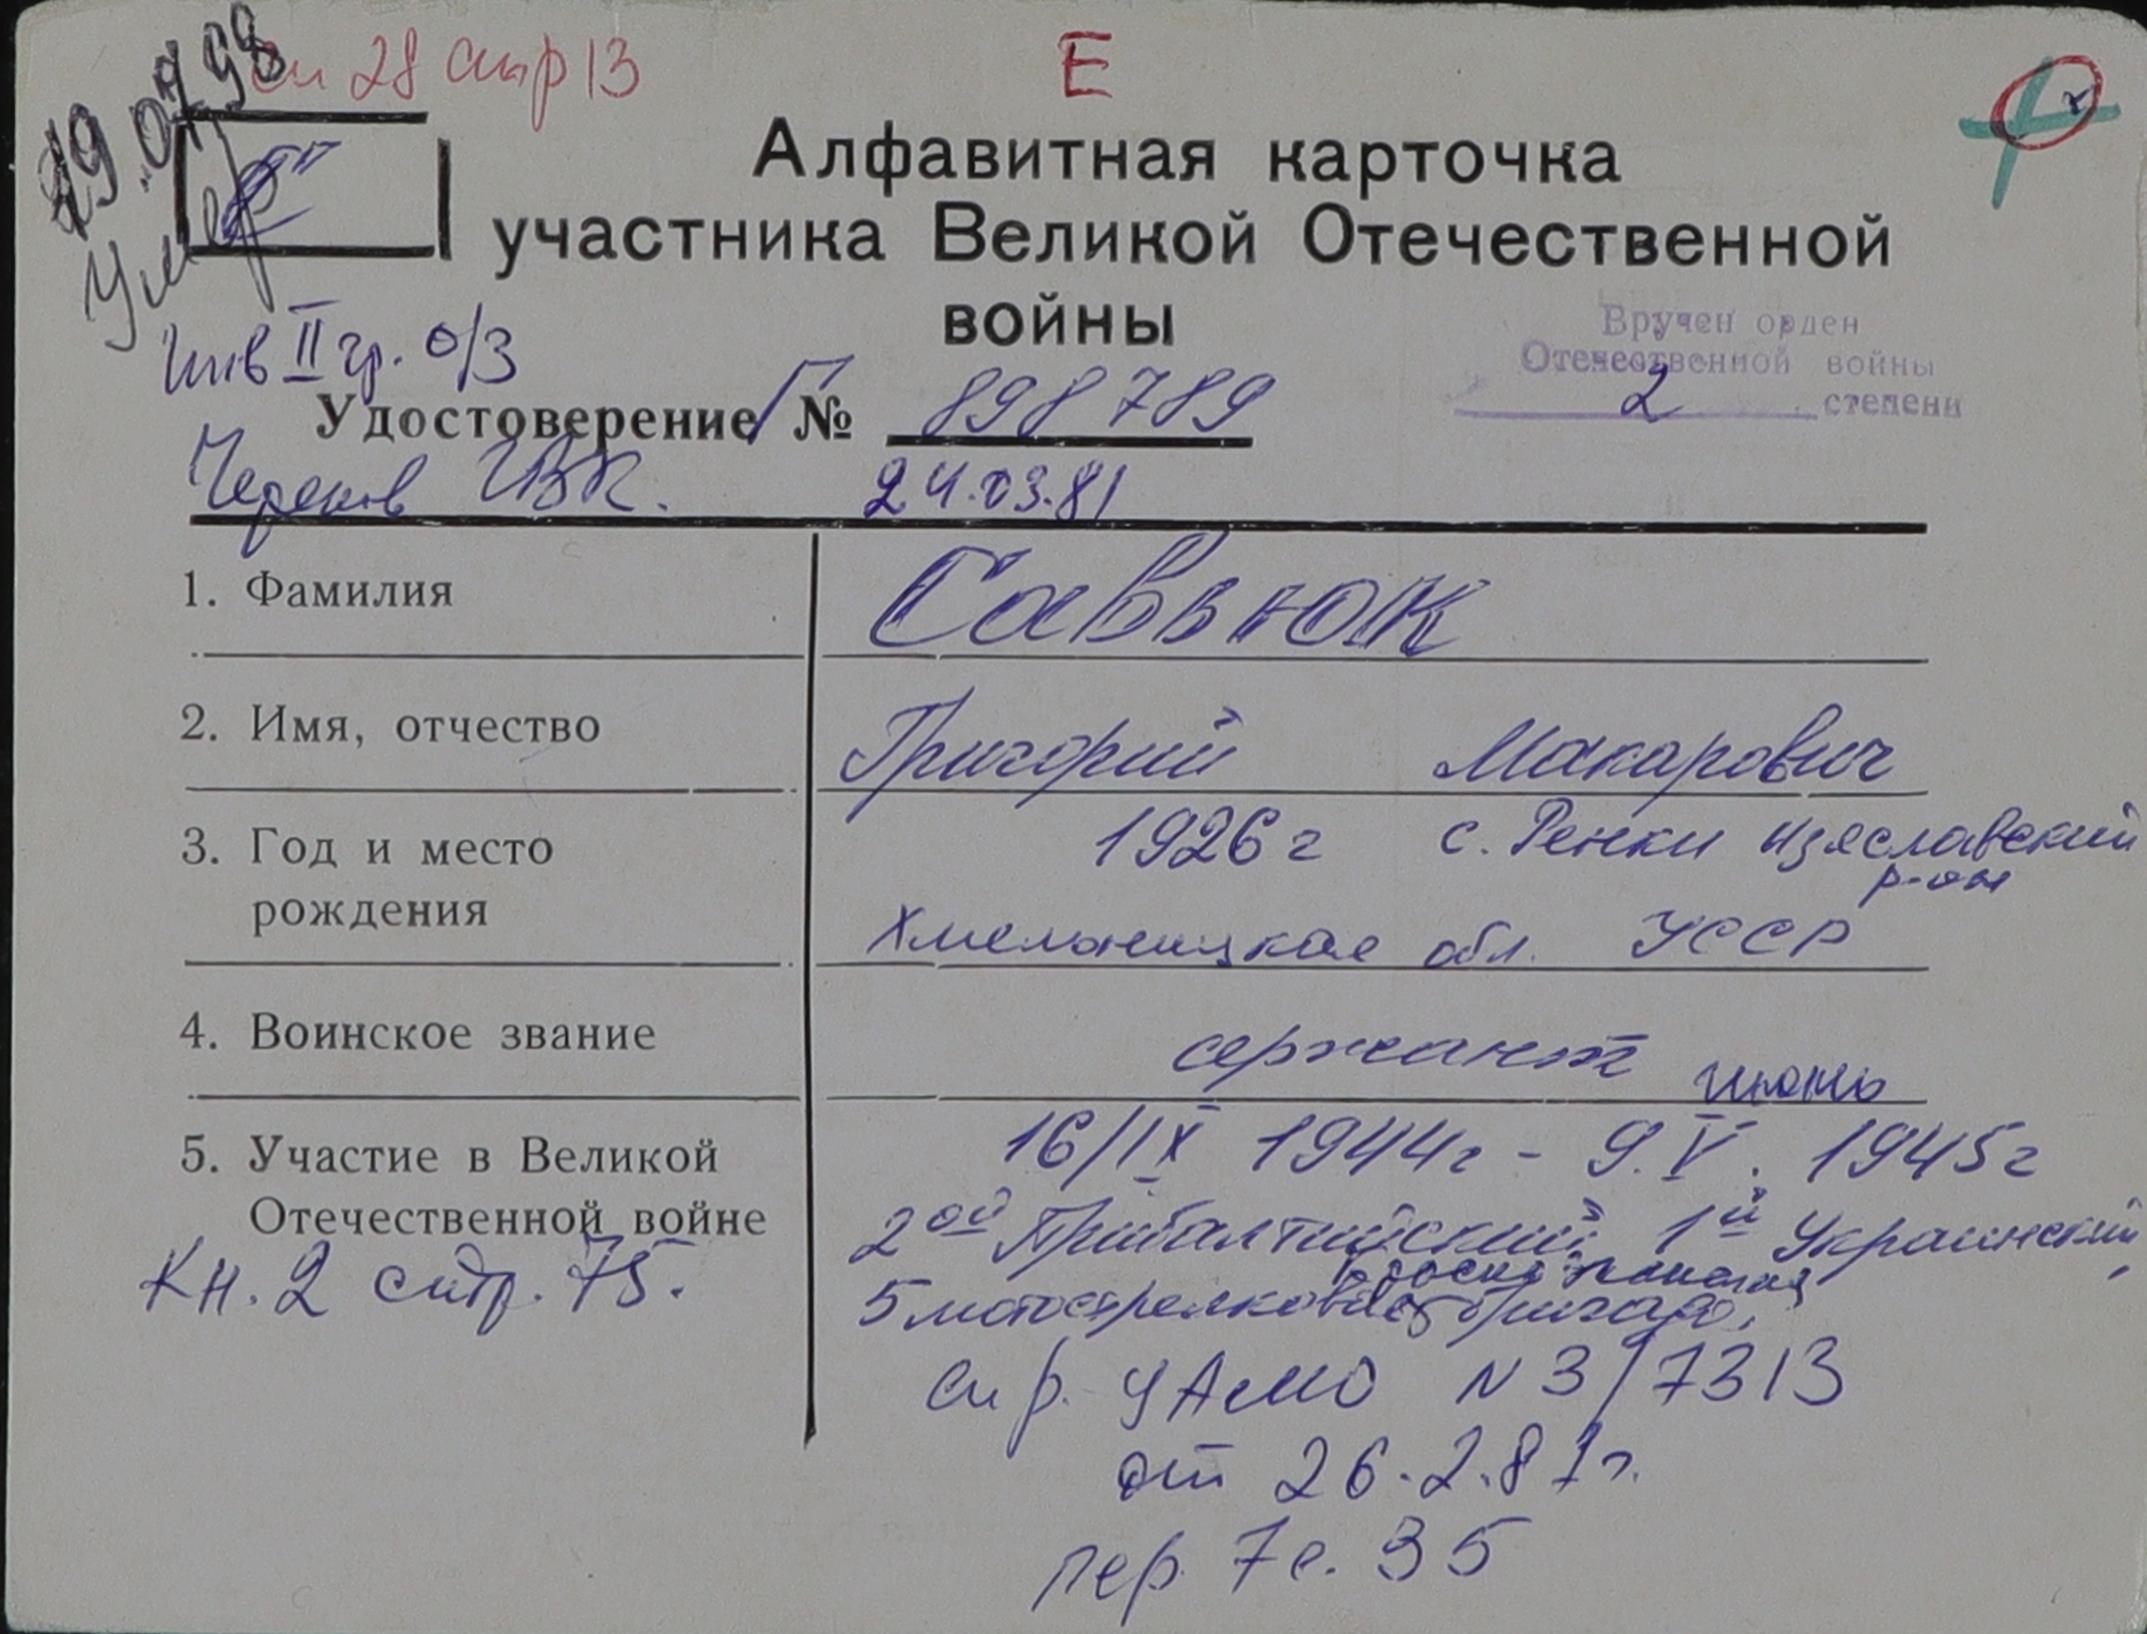 сп 28 стр 13
Е
19.07.98
Умер
"С"
Алфавитная карточка
участника Великой Отечественной
войны
Инв II гр. о/з
Вручен орден
Отечественной войны
2 степени
Удостоверение Г № 898789
Черенов ГВК. 24.03.81
1. Фамилия Саввюк
2. Имя, отчество Григорий Макарович
3. Год и место 1926 г с. Ренки Изяславский
р-он
рождения Хмельницкая обл. УССР
4. Воинское звание сержант
июнь
5. Участие в Великой 16/IX 1944г - 9.V. 1945г
Отечественной войне 2ой Прибалтийский, 1й Украинский,
Кн. 2 стр. 75. 5 мотострелковая бригада,
спр. ЦАМО N 3/7313
от 26.2.81г.
пер. 7 с. 35